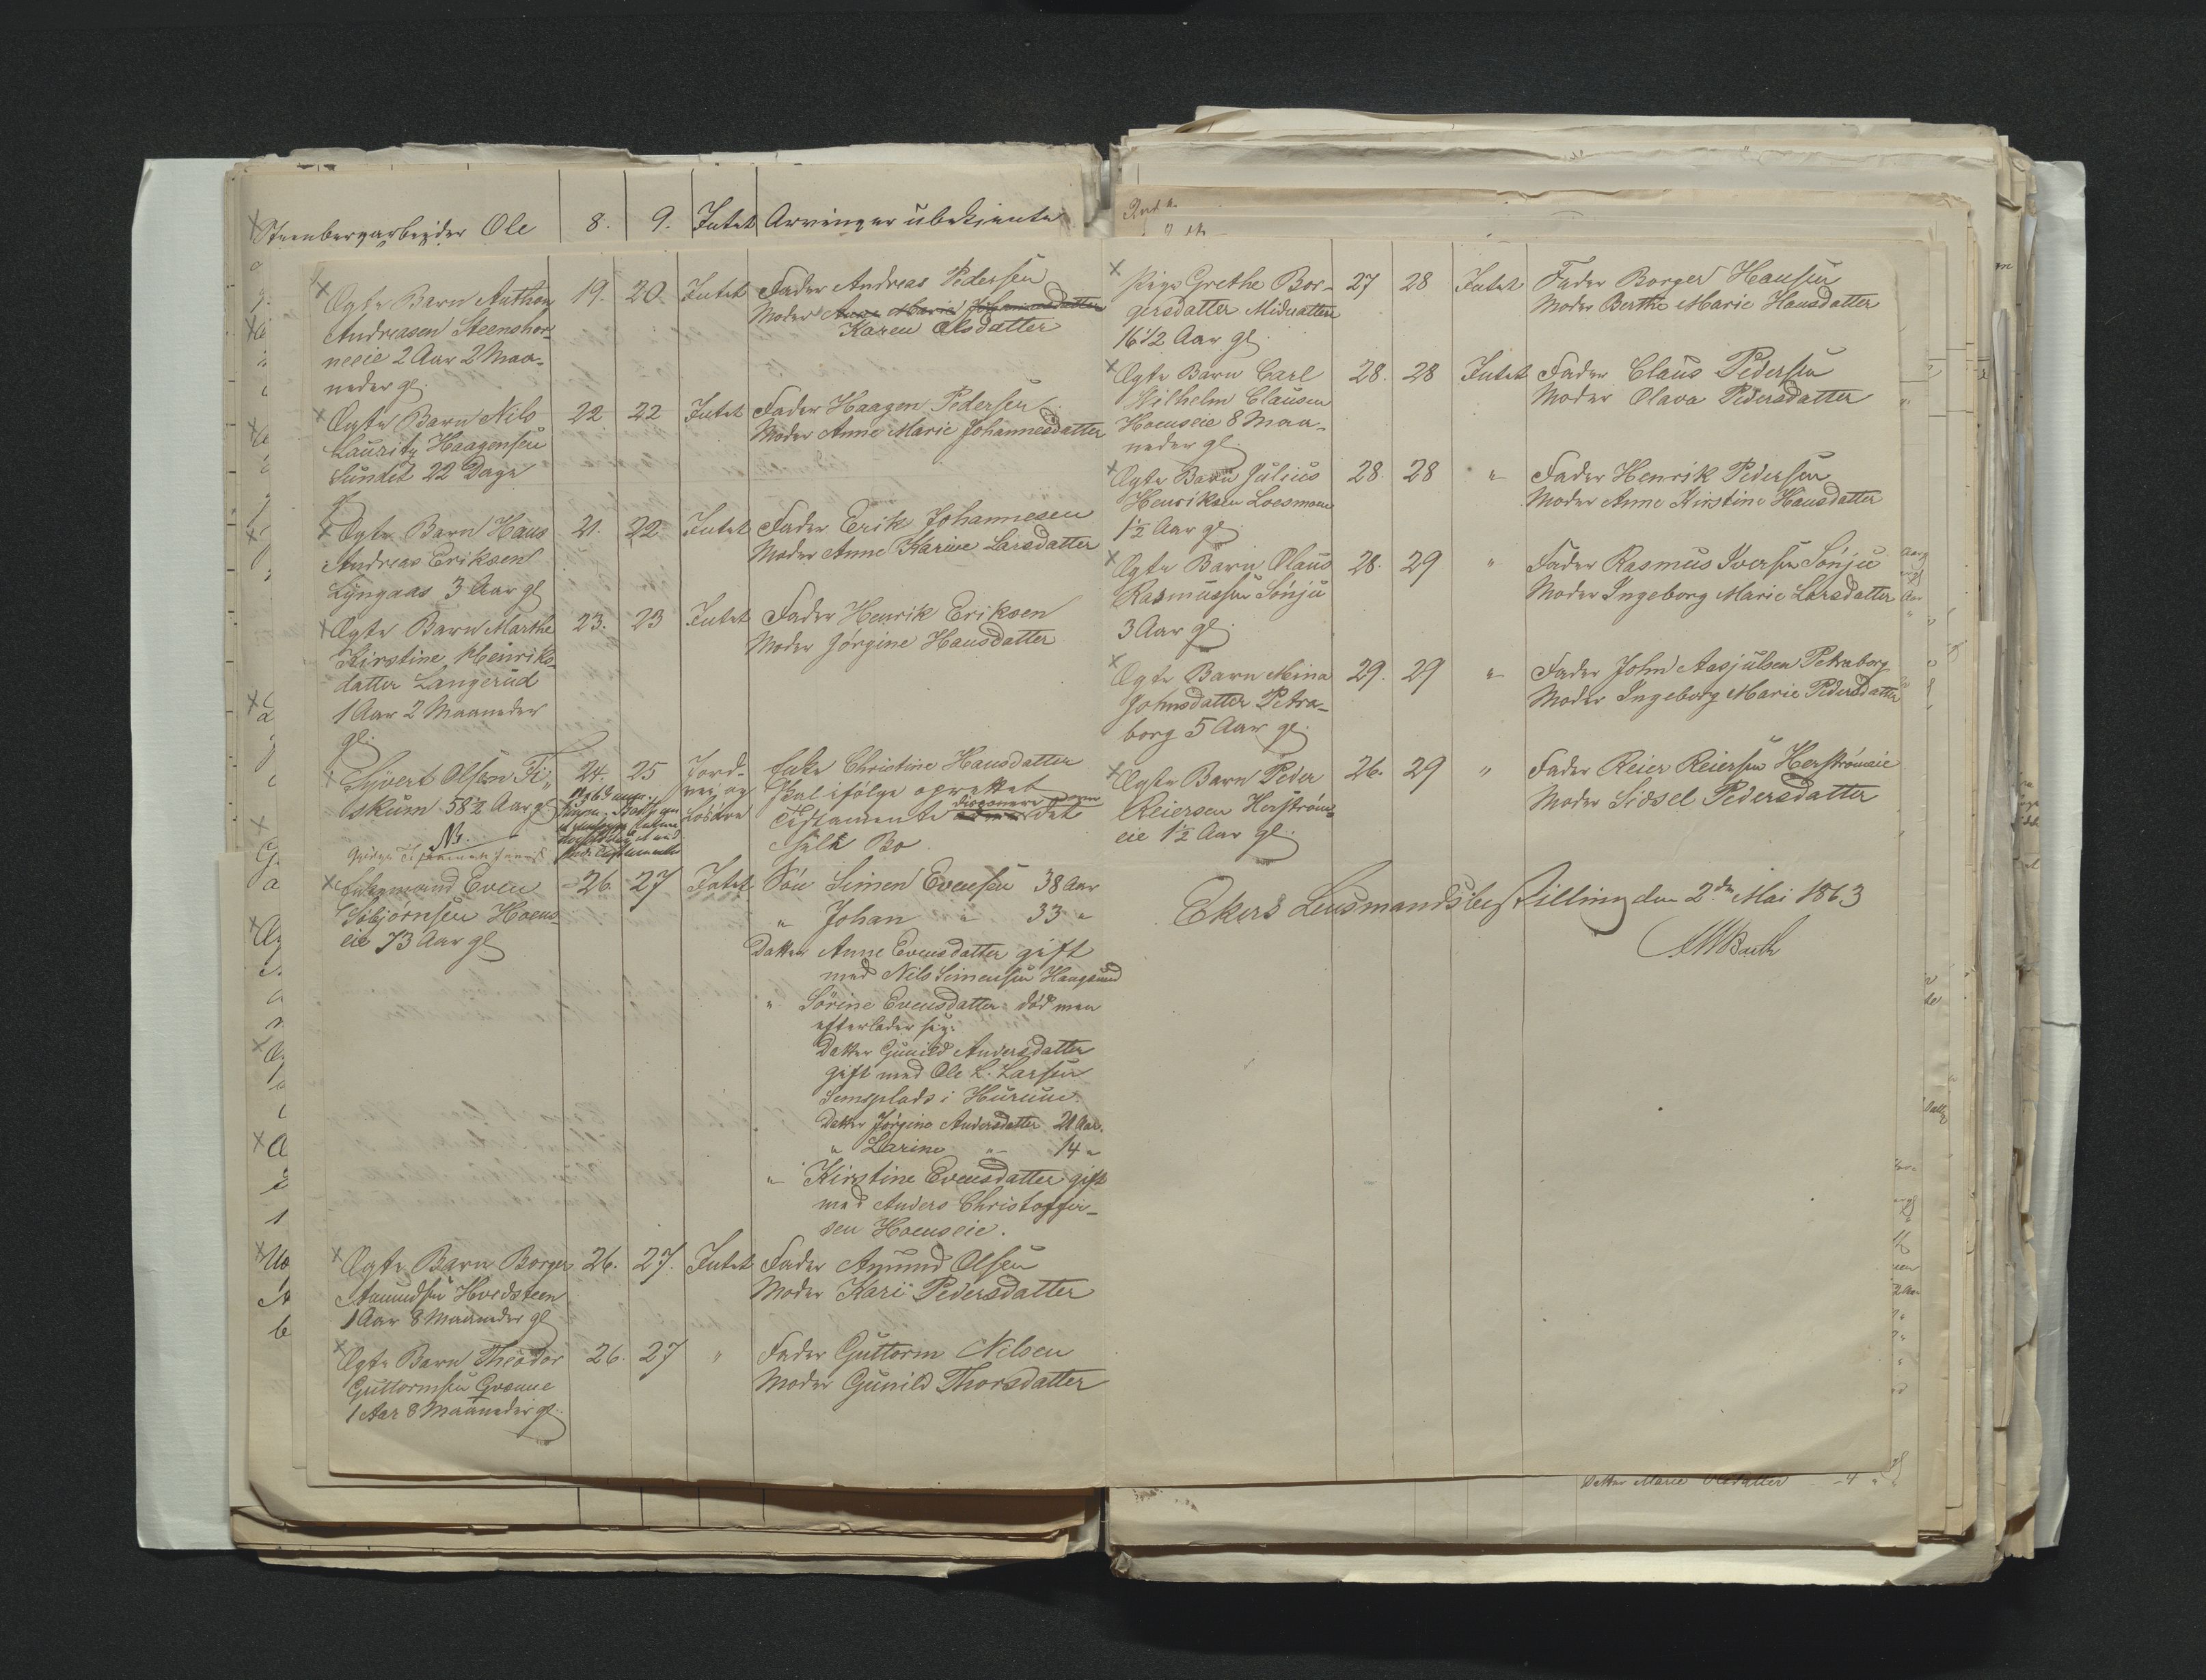 Steenbergarbeider Ole 8. 9. Intet Arvinger ubekjente
Ægte Barn Anthon 19. 20. Intet Fader Andreas Pedersen
Andreasen Steenshor- Moder Anne Marie Johannesdatter
neeie 2 Aar 2 Maa- Karen Olsdatter
neder gl.
Ægte Barn Nils 22 22 Intet Fader Haagen Pedersen
Lauritz Haagensen Moder Anne Marie Johannesdatter
Sundet 22 Dage
gl
Ægte Barn Hans 21. 22 Intet Fader Erik Johannesen
Andreas Eriksen Moder Anne Karine Larsdatter
Lyngaas 3 Aar gl
Ægte Barn Marthe 23. 23 Intet Fader Henrik Eriksen
Kirstine Henriks- Moder Jørgine Hansdatter
datter Langerud
1 Aar 2 Maaneder
gl.
Syvert Olsen Fi- 24. 25 Jord- Enke Christine Hansdatter
skum 58½ Aar gl vei og skal ifølge oprettet
NB. Løsøre Testamente disponere det
hele Bo
Even 26. 27 Intet Søn Simen Evensen 38 Aar
Sibjørnsen Hoens- " Johan " 33 "
eie 73 Aar gl Datter Anne Evensdatter gift
med Nils Simensen Haugsund
" Sørine Evensdatter død men
efterlader sig:
Datter Gunild Andersdatter
gift med Ole L. Larsen
i Hurum.
Datter Jørgine Andersdatter 21 Aar.
" Larine " 14 "
" Kirstine Evensdatter gift
med Anders Christoffer-
sen Hoenseie.
Ægte Barn Borger 26. 27. Intet Fader Amund Olsen
Amundsen Hvedsteen Moder Kari Pedersdatter
1 Aar 8 Maaneder gl
Ægte Barn Theodor 26. 27 " Fader Guttorm Nilsen
Guttormsen Moder Gunild Thorsdatter
1 Aar 8 Maaneder gl.
Pige Grethe Bor- 27 28 Intet Fader Borger Hansen
gersdatter Midnatten Moder Berthe Marie Hansdatter
16 1/2 Aar gl.
Ægte Barn Carl 28. 28 Intet Fader Claus Pedersen
Wilhelm Clausen Moder Olava Pedersdatter
Hoenseie 8 Maa-
neder gl.
Ægte Barn Julius 28. 28 " Fader Henrik Pedersen
Henriksen Loesmoen Moder Anne Kirstine Hansdatter
1½ Aar gl.
Ægte Barn Olaus 28. 29 " Fader Rasmus Iversen Sønju
Rasmussen Sønju Moder Ingeborg Marie Larsdatter
3 Aar gl.
Ægte Barn Mina 29. 29 " Fader John Aasjulsen Petraborg
Johnsdatter Petra- Moder Ingeborg Marie Pedersdatter
borg 5 Aar gl.
Ægte Barn Peder 26. 29 " Fader Reier Reiersen Herstrømeie
Reiersen Herstrøms- Moder Sidsel Pedersdatter
eie 1½ Aar gl.
Ekers Lensmandsbestilling den 2den Mai 1863
Barth
Datter Marie Olsdatter 4 "